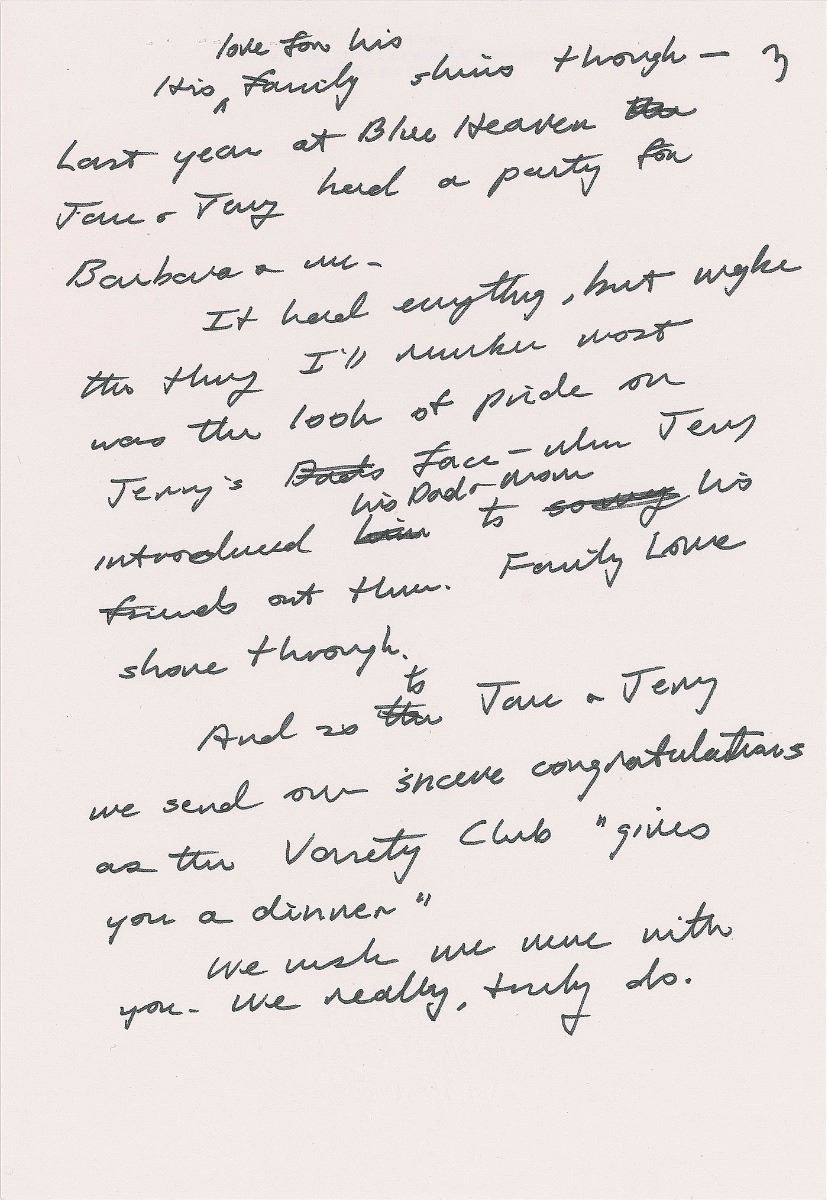 love for his
His ^ family shins though — 3
Last year at Blue Heaven the
Jane & Jerry had a party for
Barbara & me -
It had everything, but maybe
the thing I'll remember most
was the look of pride on
Jerry's Dad's face - when Jerry
his Dad & mom
introduced him to his
friends out there. Family Love
shone through.
to
And so the Jane & Jerry
we send our sincere congratulations
as the Variety Club "gives
you a dinner"
We wish we were with
you - We really, truly do.